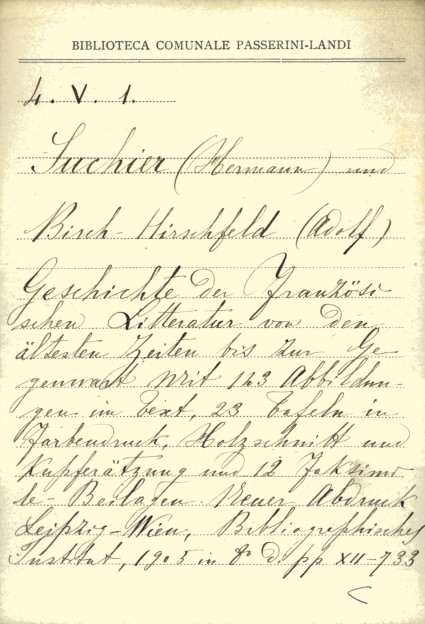 BIBLIOTECA COMUNALE PASSERINI-LANDI
4. V. 1.
Suchier (Hermann) und
Birch-Hirschfeld (Adolf)
Geschichte der Französi-
schen Litteratur von den
ältesten Zeiten bis zur Ge-
genwart Mit 143 Abbildun-
gen im Text, 23 Tafeln in
Farbendruck, Holzschnitt und
Kupferätzung und 12 Faksimi-
le-Beilagen. Neuer Abdruck
Leipzig-Wien, Bibliographisches
Institut, 1905 in 8° d. pp XII-733